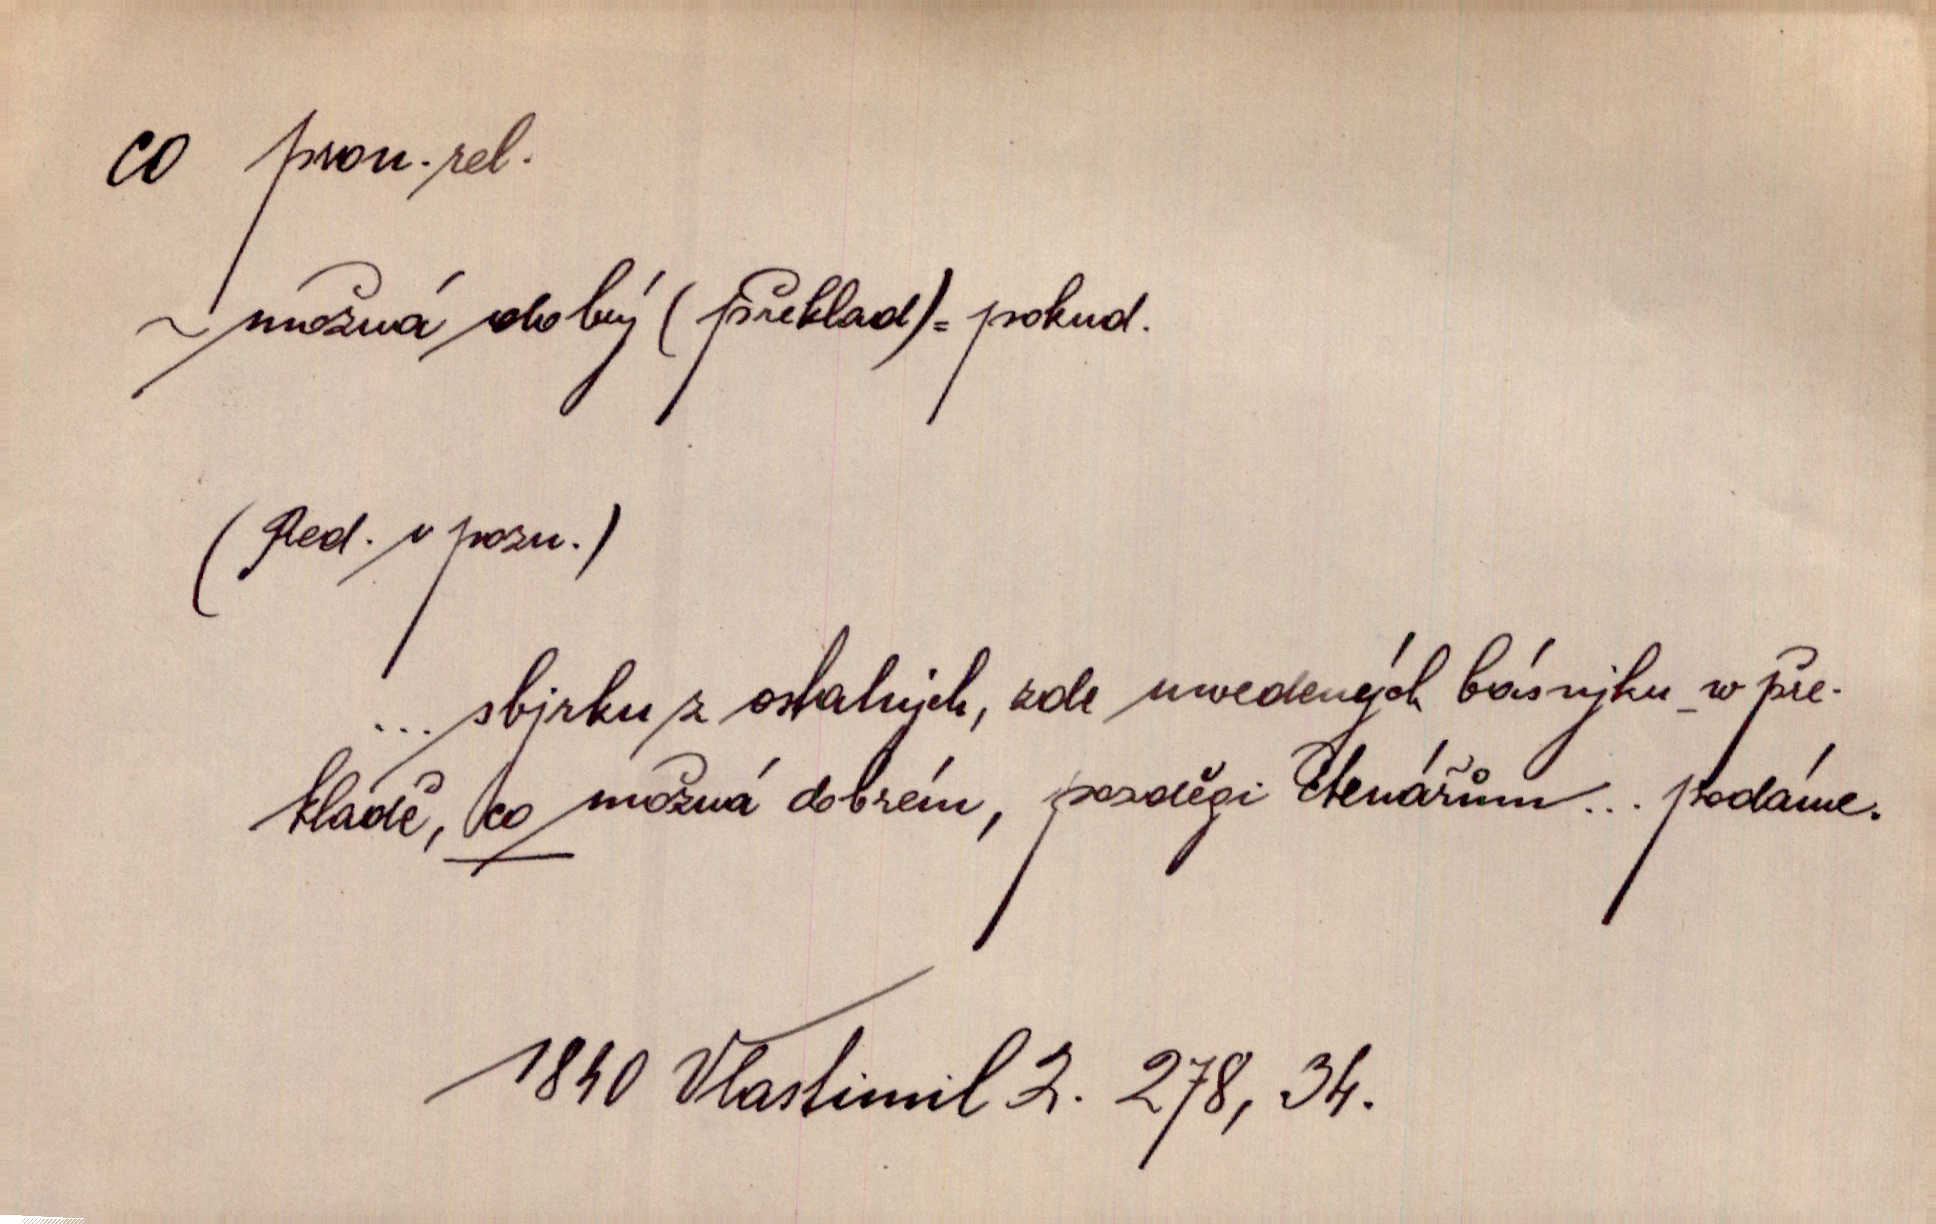 co pron. rel.
~ možná dobrý (překlad) = pokud.
(Red. v pozn.)
... sbjrku z ostatnjch, zde uwedených básnjků w pře-
kladě, co možná dobrém, pozděgi čtenářům ... podáme.
1840 Vlastimil 2. 278, 34.